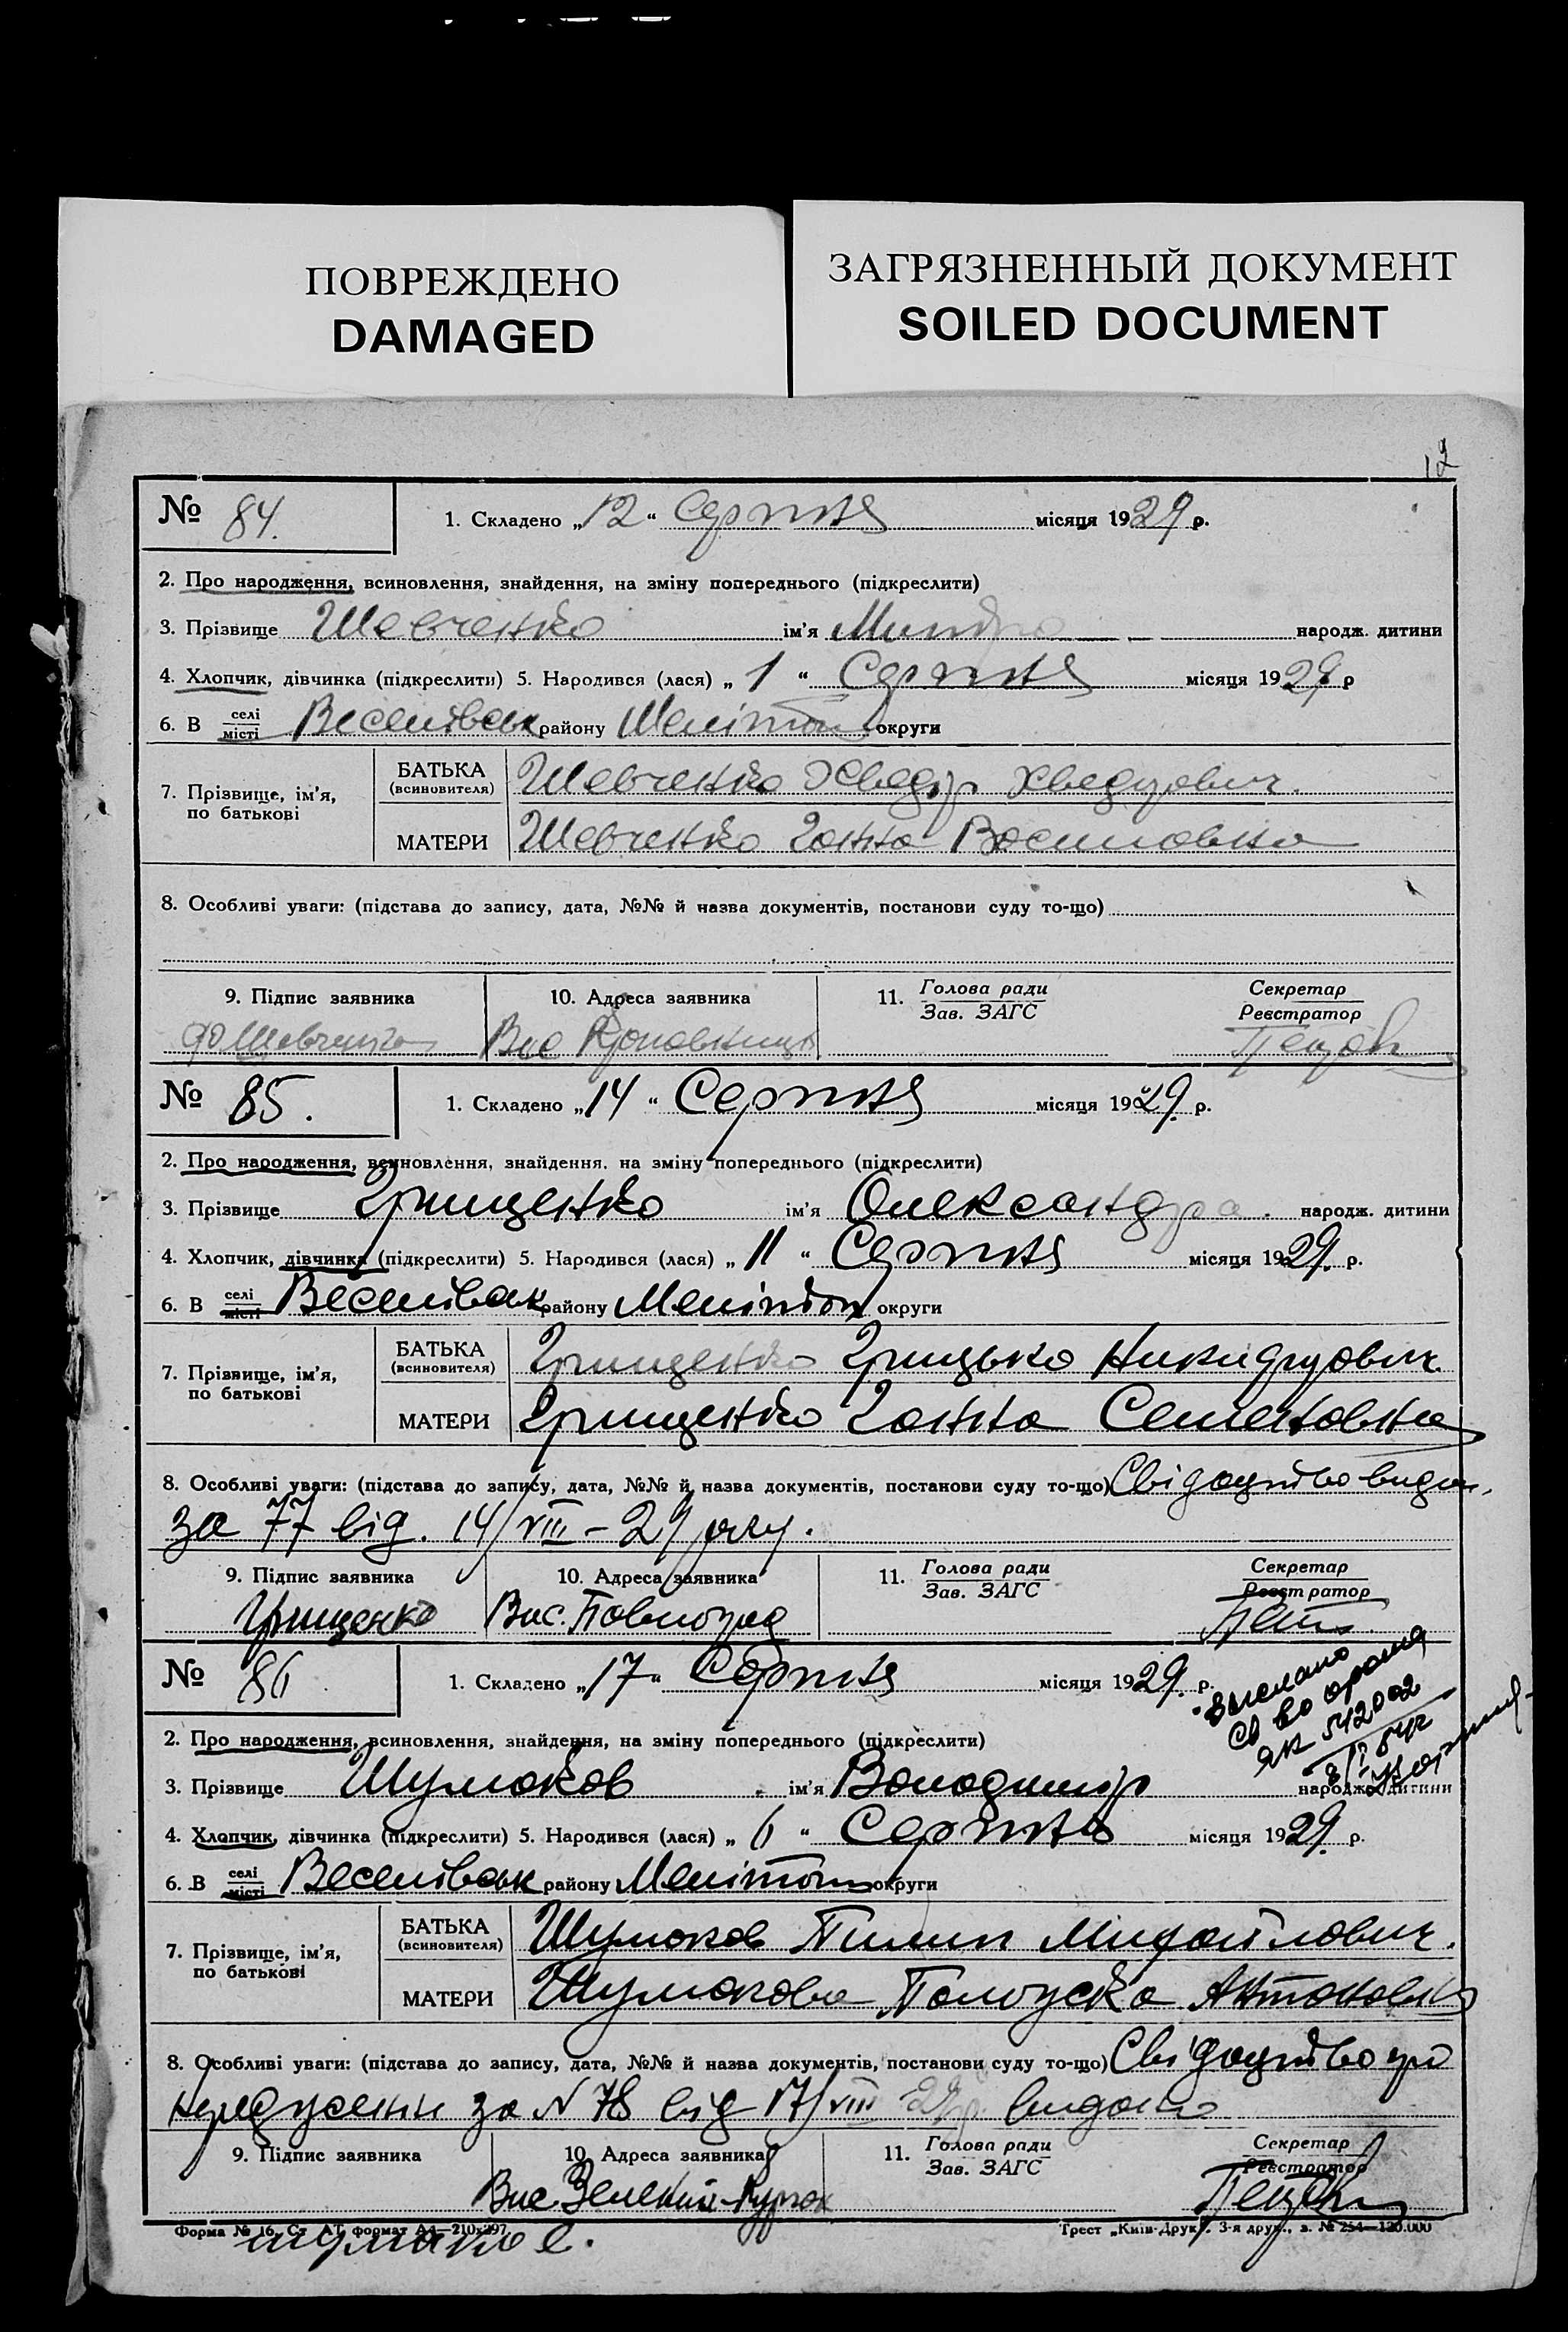 ПОВРЕЖДЕНО
DAMAGED
ЗАГРЯЗНЕННЫЙ ДОКУМЕНТ
SOILED DOCUMENT
12
№ 84. 1. Складено „12“ Серпня місяця 1929 р.
2. Про народження, всиновлення, знайдення, на зміну попереднього (підкреслити)
3. Прізвище Шевченко ім'я народж. дитини
4. Хлопчик, дівчинка (підкреслити) 5. Народився (лася) „1“ Серпня місяця 1929 р
6. В селі місті Веселівськ району Меліт округи
7. Прізвище, ім'я, по батькові
БАТЬКА (всиновителя) Шевченко Хведір Хведорович.
МАТЕРИ Шевченко Ганна Василовна
8. Особливі уваги: (підстава до запису, дата, №№ й назва документів, постанови суду то-що)
9. Підпис заявника 10. Адреса заявника 11. Голова ради Зав. ЗАГС Секретар Реєстратор
Шевченко Вис
№ 85. 1. Складено „14“ Серпня місяця 1929. р.
2. Про народження, всиновлення, знайдення, на зміну попереднього (підкреслити)
3. Прізвище Грищенко ім'я Олександра. народж. дитини
4. Хлопчик, дівчинка (підкреслити) 5. Народився (лася) „11“ Серпня місяця 1929. р.
6. В селі місті Веселівськ району Мелітоп округи
7. Прізвище, ім'я, по батькові
БАТЬКА (всиновителя) Грищенко Грицько Никифорович.
МАТЕРИ Грищенко Ганна Семеновна
8. Особливі уваги: (підстава до запису, дата, №№ й назва документів, постанови суду то-що) Свідоцтво видан.
за 77 від. 14/VIII–29 року.
9. Підпис заявника 10. Адреса заявника 11. Голова ради Зав. ЗАГС Секретар Реєстратор
Грищенко Вис. Павлоград
№ 86 1. Складено „17“ Серпня місяця 1929. р.
выслано
ЯК 542002
2. Про народження, всиновлення, знайдення, на зміну попереднього (підкреслити)
3. Прізвище Шумаков ім'я Володимір народж. дитини
4. Хлопчик, дівчинка (підкреслити) 5. Народився (лася) „6“ Серпня місяця 1929. р.
6. В селі місті Веселівськ району Мелітоп округи
7. Прізвище, ім'я, по батькові
БАТЬКА (всиновителя) Шумаков Пилип Михайлович.
МАТЕРИ Шумакова Палажка Антоновна
8. Особливі уваги: (підстава до запису, дата, №№ й назва документів, постанови суду то-що) Свідоцтво про
народження за N 78 від 17/VIII 29р. видано
9. Підпис заявника 10. Адреса заявника 11. Голова ради Зав. ЗАГС Секретар Реєстратор
Вис Зелений-Курган
Форма № 16. Ст. АТ, формат А4—210х297
Трест „Київ-Друк“. 3-я друк., з. № 254—120.000